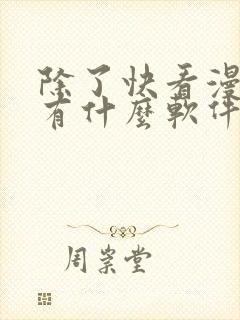 除了快看漫
有什麼軟件
周崇堂